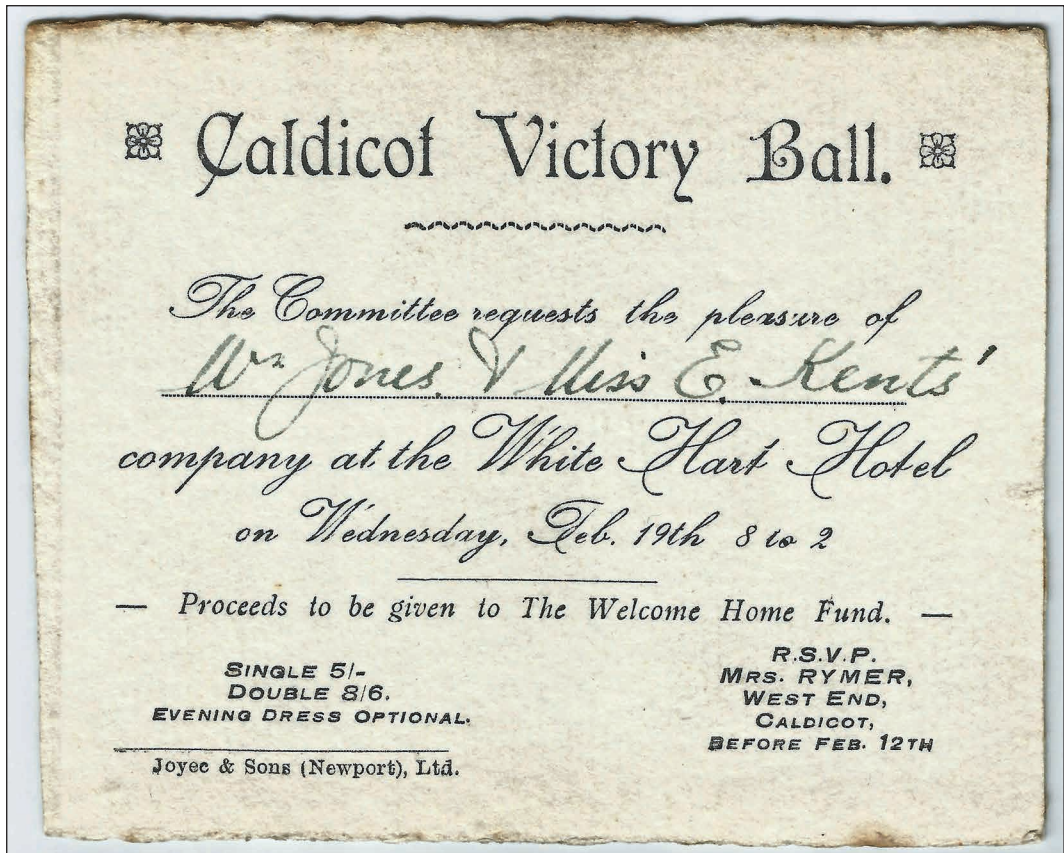 Caldicot Victory Ball.
The Committee requests the pleasure of
Mr Jones. & Miss E. Kents'
company at the White Hart Hotel
on Wednesday, Feb. 19th 8 to 2
— Proceeds to be given to The Welcome Home Fund. —
SINGLE 5/-
DOUBLE 8/6.
EVENING DRESS OPTIONAL.
Joyce & Sons (Newport), Ltd.
R.S.V.P.
MRS. RYMER,
WEST END,
CALDICOT,
BEFORE FEB. 12TH